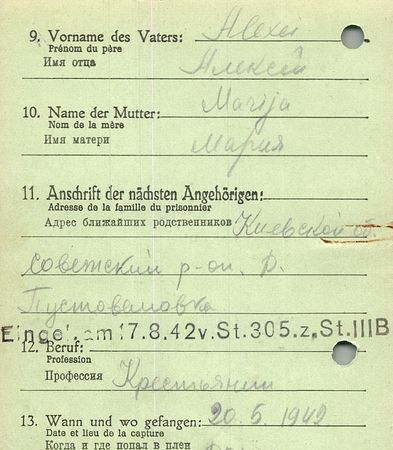 9. Vorname des Vaters: Alexei
Prénom du père
Имя отца Алексей
10. Name der Mutter: Marija
Nom de la mère
Имя матери Мария
11. Anschrift der nächsten Angehörigen:
Adresse de la famille du prisonnier
Адрес ближайших родственников Киевской об.
Советский р-он. д.
Пустоваловка
Eingel. am 17.8.42 v. St. 305. z. St. III B
12. Beruf:
Profession
Профессия Крестьянин
13. Wann und wo gefangen: 20. 5. 1942
Date et lieu de la capture
Когда и где попал в плен